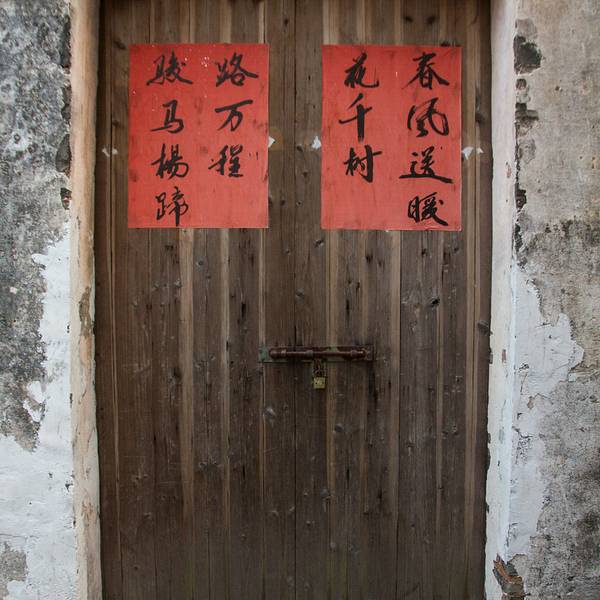 春风送暖
花千树
骏马楊蹄
路万程